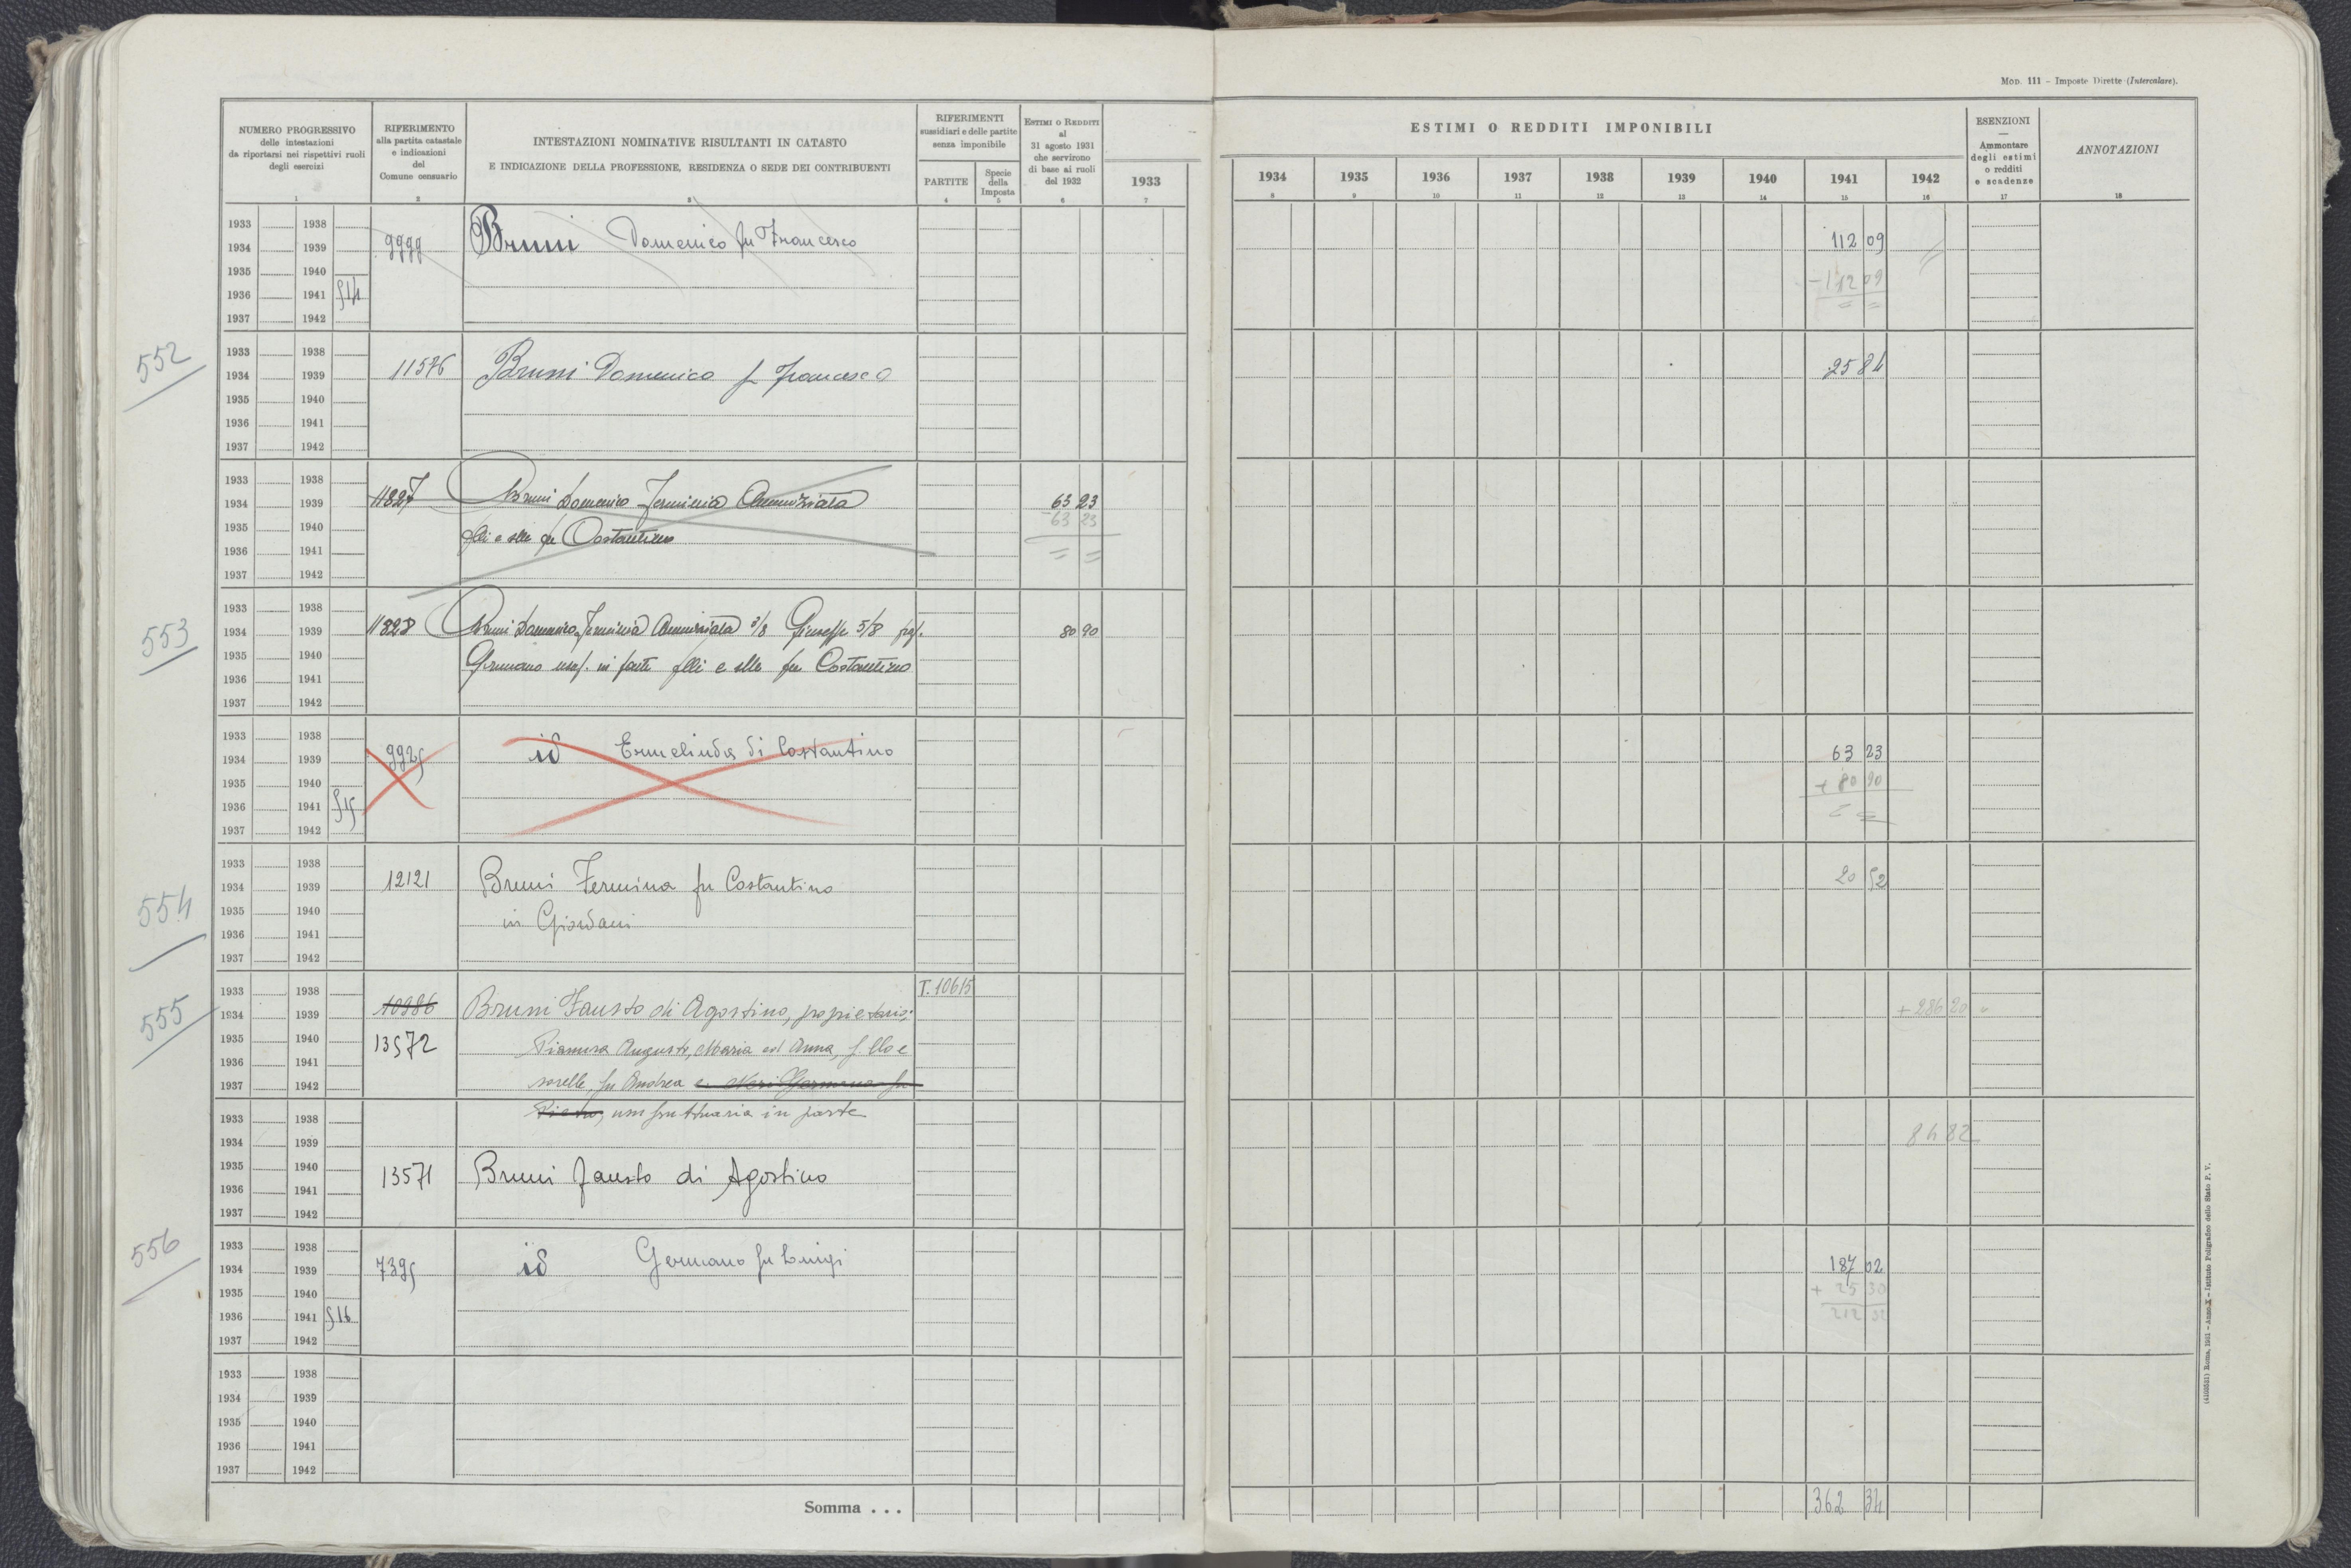 Mod. 111 - Imposte Dirette (Intercalare).
NUMERO PROGRESSIVO
delle intestazioni
da riportarsi nei rispettivi ruoli
degli esercizi
RIFERIMENTO
alla partita catastale
e indicazioni
del
Comune censuario
INTESTAZIONI NOMINATIVE RISULTANTI IN CATASTO
E INDICAZIONE DELLA PROFESSIONE, RESIDENZA O SEDE DEI CONTRIBUENTI
RIFERIMENTI
sussidiari e delle partite
senza imponibile
PARTITE
Specie
della
Imposta
Estimi o Redditi
al
31 agosto 1931
che servirono
di base ai ruoli
del 1932
1933
ESTIMI O REDDITI IMPONIBILI
1934 1935 1936 1937 1938 1939 1940 1941 1942
ESENZIONI
—
Ammontare
degli estimi
o redditi
e scadenze
ANNOTAZIONI
1 2 3 4 5 6 7 8 9 10 11 12 13 14 15 16 17 18
1933 1938
1934 1939 9999 Bruni Domenico fu Francesco 112 09
1935 1940 -112 09
1936 1941 514
1937 1942
552
1933 1938
1934 1939 11576 Bruni Domenico fu Francesco 25 84
1935 1940
1936 1941
1937 1942
1933 1938
1934 1939 11827 Bruni Domenico Annunziata 63 23
-63 23
1935 1940 flli e slle fu Costantino
1936 1941
1937 1942
553
1933 1938
1934 1939 11828 Bruni Domenico, Annunziata 3/8 Giuseppe 5/8 80 90
1935 1940 Germano usuf. in parte flli e slle fu Costantino
1936 1941
1937 1942
1933 1938
1934 1939 9925 id Ermelinda di Costantino 63 23
1935 1940 + 80 90
1936 1941 515
1937 1942
554
1933 1938
1934 1939 12121 Bruni Fermina fu Costantino 20 52
1935 1940 in Giordani
1936 1941
1937 1942
555
1933 1938 T. 10615
1934 1939 10986 Bruni Fausto di Agostino, proprietario; +286 20
1935 1940 13572 Augusto, Maria ed Anna, f.llo e
1936 1941
1937 1942 sorelle, fu Andrea e Neri Germana fu
1933 1938 Pietro, usufruttuaria in parte
1934 1939 84 82
1935 1940
1936 1941 13571 Bruni Fausto di Agostino
1937 1942
556
1933 1938
1934 1939 7395 id Germano fu Luigi 187 02
1935 1940 + 25 30
1936 1941 516 212 32
1937 1942
1933 1938
1934 1939
1935 1940
1936 1941
1937 1942
Somma . . . 362 34
(4103501) Roma, 1931 - Anno X - Istituto Poligrafico dello Stato P. V.